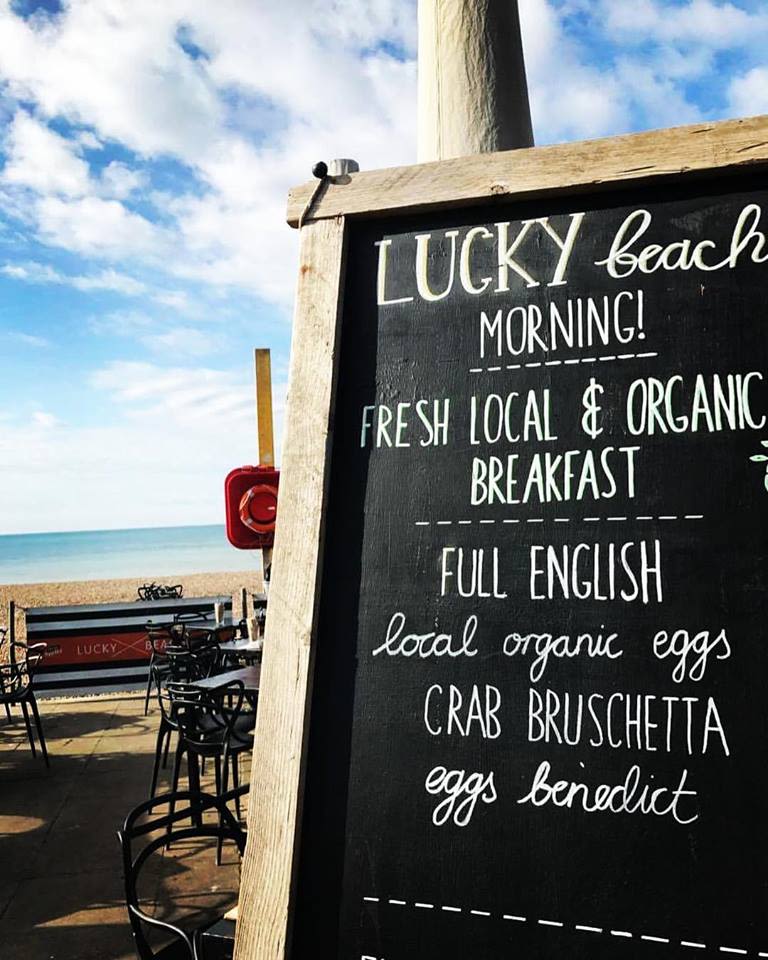 LUCKY beach
MORNING!
FRESH LOCAL & ORGANIC
BREAKFAST
FULL ENGLISH
local organic eggs
CRAB BRUSCHETTA
eggs benedict
LUCKY BEA